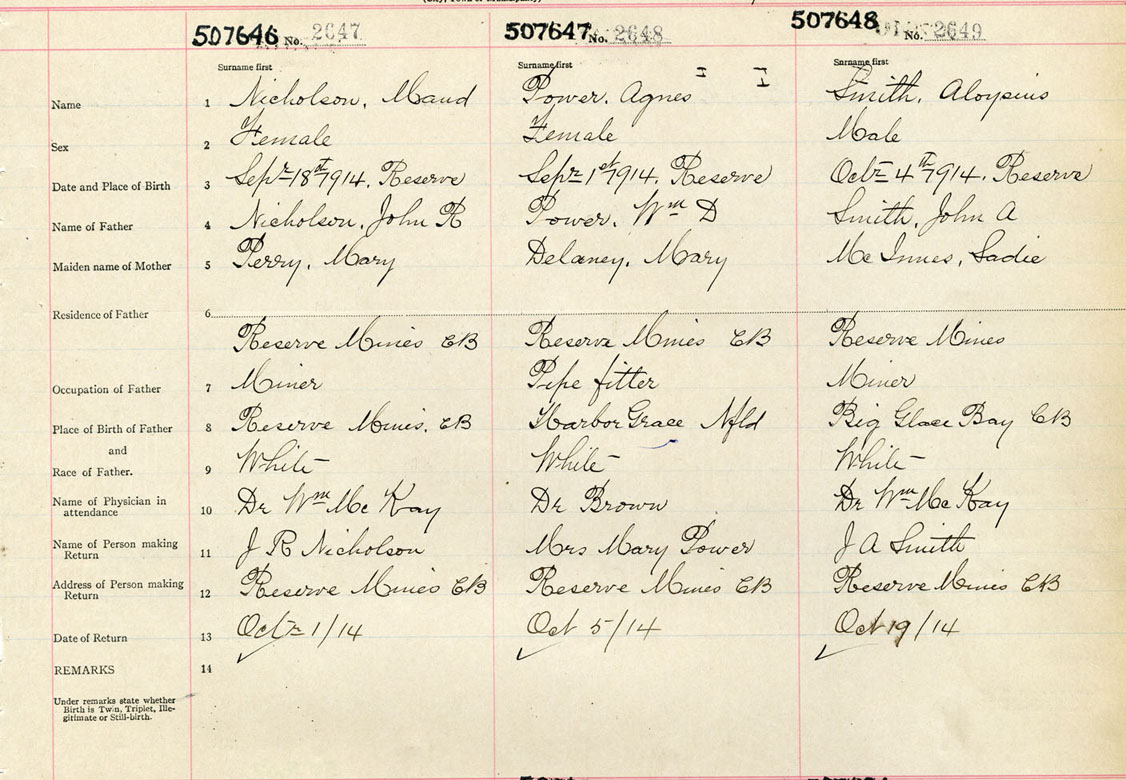 507646 No. 2647 507647 No. 2648 507648 No. 2649
Surname first Surname first Surname first
Name 1 Nicholson, Maud Power, Agnes Smith, Aloysius
Sex 2 Female Female Male
Date and Place of Birth 3 Sepr 18th 1914, Reserve Sepr 1st 1914, Reserve Octr 4th 1914, Reserve
Name of Father 4 Nicholson, John R Power, Wm D Smith, John A
Maiden name of Mother 5 Perry, Mary Delaney, Mary Mc Innes, Sadie
Residence of Father 6
Reserve Mines CB Reserve Mines CB Reserve Mines
Occupation of Father 7 Miner Pipe fitter Miner
Place of Birth of Father 8 Reserve Mines, CB Harbor Grace Nfld Big Glace Bay CB
and
Race of Father. 9 White White White
Name of Physician in
attendance 10 Dr Wm Mc Kay Dr Brown Dr Wm Mc Kay
Name of Person making
Return 11 J R Nicholson Mrs Mary Power J A Smith
Address of Person making
Return 12 Reserve Mines CB Reserve Mines CB Reserve Mines CB
Date of Return 13 Octr 1/14 Oct 5/14 Oct 19/14
REMARKS 14
Under remarks state whether
Birth is Twin, Triplet, Ille-
gitimate or Still-birth.